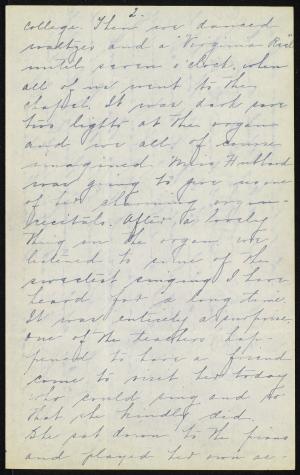 2.
college. Then we danced
waltzes and a "Virginia Reel"
until seven o'clock, when
all of us went to the
chapel. It was dark save
two lights at the organ
and we all, of course
imagined Miss Hubbard
was going to give us one
of her charming organ-
recitals. After a lovely
thing on the organ we
listened to some of the
sweetest singing I have
heard for a long time.
It was entirely a surprise.
One of the teachers hap-
pened to have a friend
come to visit her today
who could sing and so
that she kindly did.
She sat down to the piano
and played her own ac-